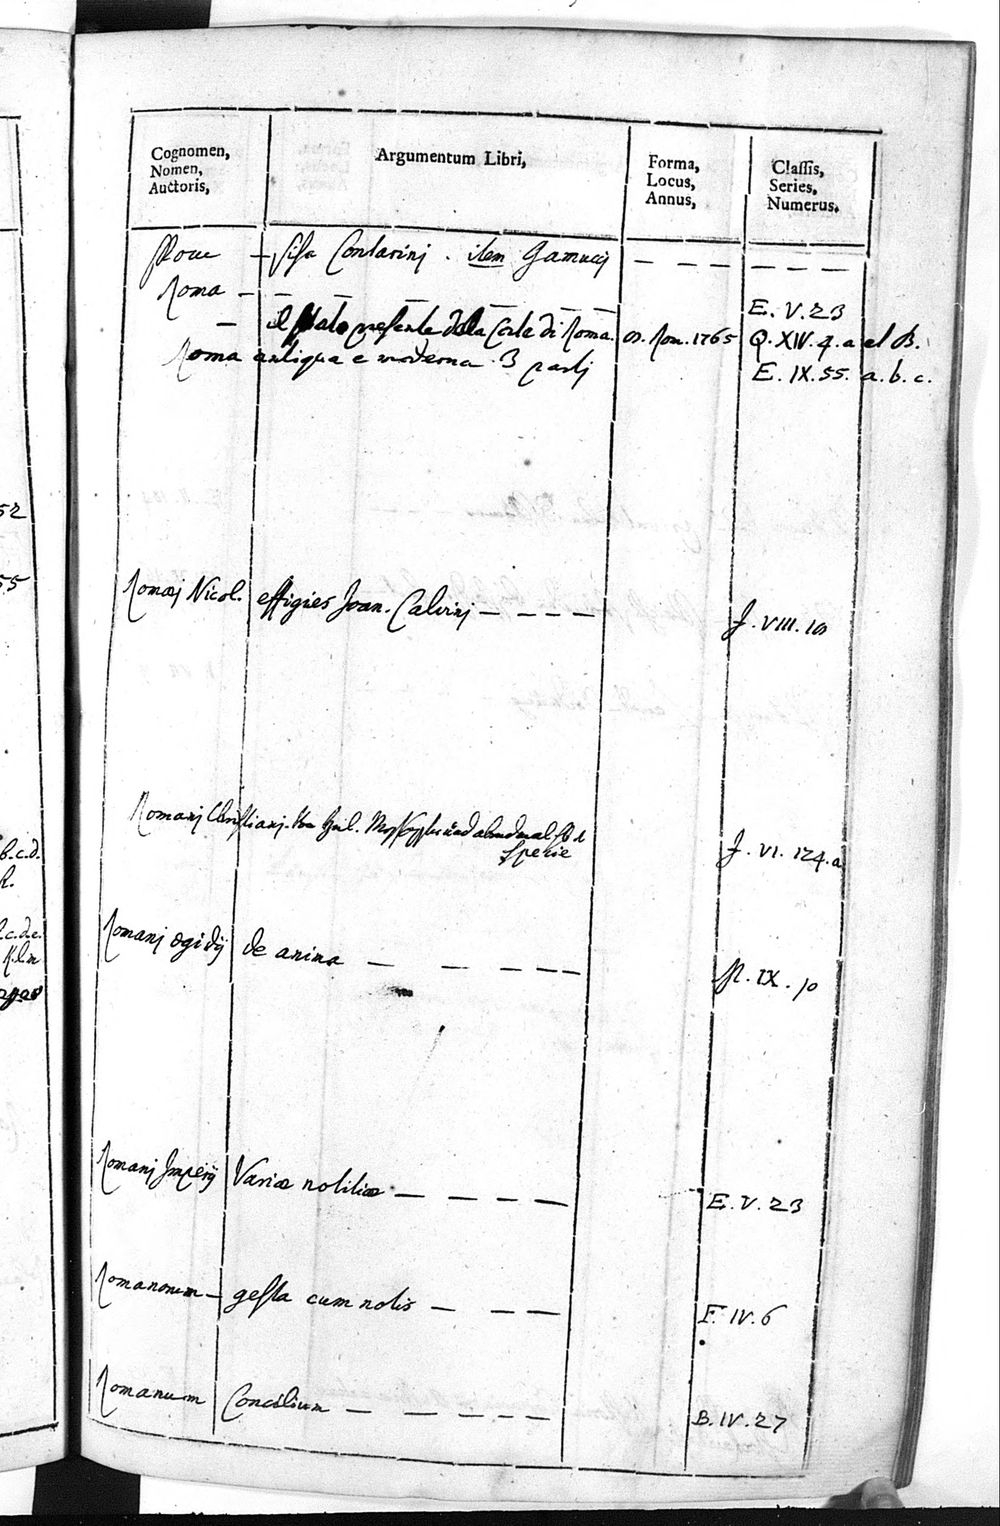 Cognomen, Nomen, Auctoris,
Argumentum Libri,
Forma, Locus, Annus,
Classis, Series, Numerus.
Contarinj . item Gamucij
Roma
E. V. 23
il Stato presente della Corte di Roma. Rom. 1765 Q. XIV. 4. a et B.
Roma antiqua e moderna 3 partj E. IX. 55. a. b. c.
Romaj Nicol. effigies Joan. Calvinj J. VIII. 10
Romanj Christianj
specie
J. VI. 124. a
Romanj Ægidij de anima IX. 10
Romanj Imperij Variæ notitiæ E. V. 23
Romanorum gesta cum notis F. IV. 6
Romanum Concilium B. IV. 27
52
55
b.c.d.
R.
c.d.e.
K.l.m